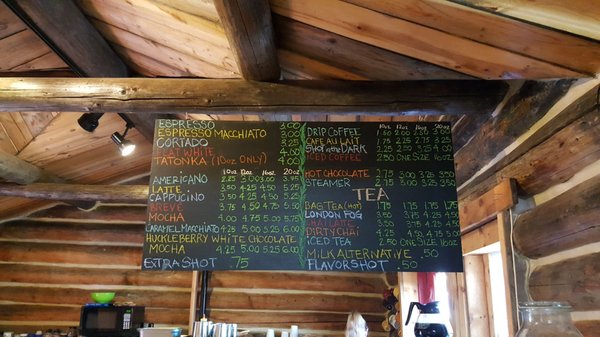 ESPRESSO 3.00
ESPRESSO MACCHIATO 3.00
CORTADO 3.25
FLAT WHITE 4.00
TATONKA (10OZ ONLY) 4.00
10oz 12oz 16oz 20oz
AMERICANO 2.25 3.00 3.00 3.75
LATTE 3.50 4.25 4.50 5.25
CAPPUCCINO 3.50 4.25 4.50 5.25
BREVE 3.75 4.50 4.75 5.50
MOCHA 4.00 4.75 5.00 5.75
CARAMEL MACCHIATO 4.25 5.00 5.25 6.00
HUCKLEBERRY WHITE CHOCOLATE
MOCHA 4.25 5.00 5.25 6.00
EXTRA SHOT .75
10oz 12oz 16oz 20oz
DRIP COFFEE 1.50 2.00 2.50
CAFE AU LAIT
SHOT IN THE DARK
ICED COFFEE 2.50 ONE SIZE 16oz
HOT CHOCOLATE 2.75 3.00 3.25 3.50
STEAMER 2.75 3.00 3.25 3.50
TEA
BAG TEA (HOT) 1.75 1.75 1.75 1.75
LONDON FOG 3.50 3.75 4.25 4.50
CHAI LATTE
DIRTY CHAI
ICED TEA 2.50 ONE SIZE 16oz
MILK ALTERNATIVE .50
FLAVOR SHOT .50